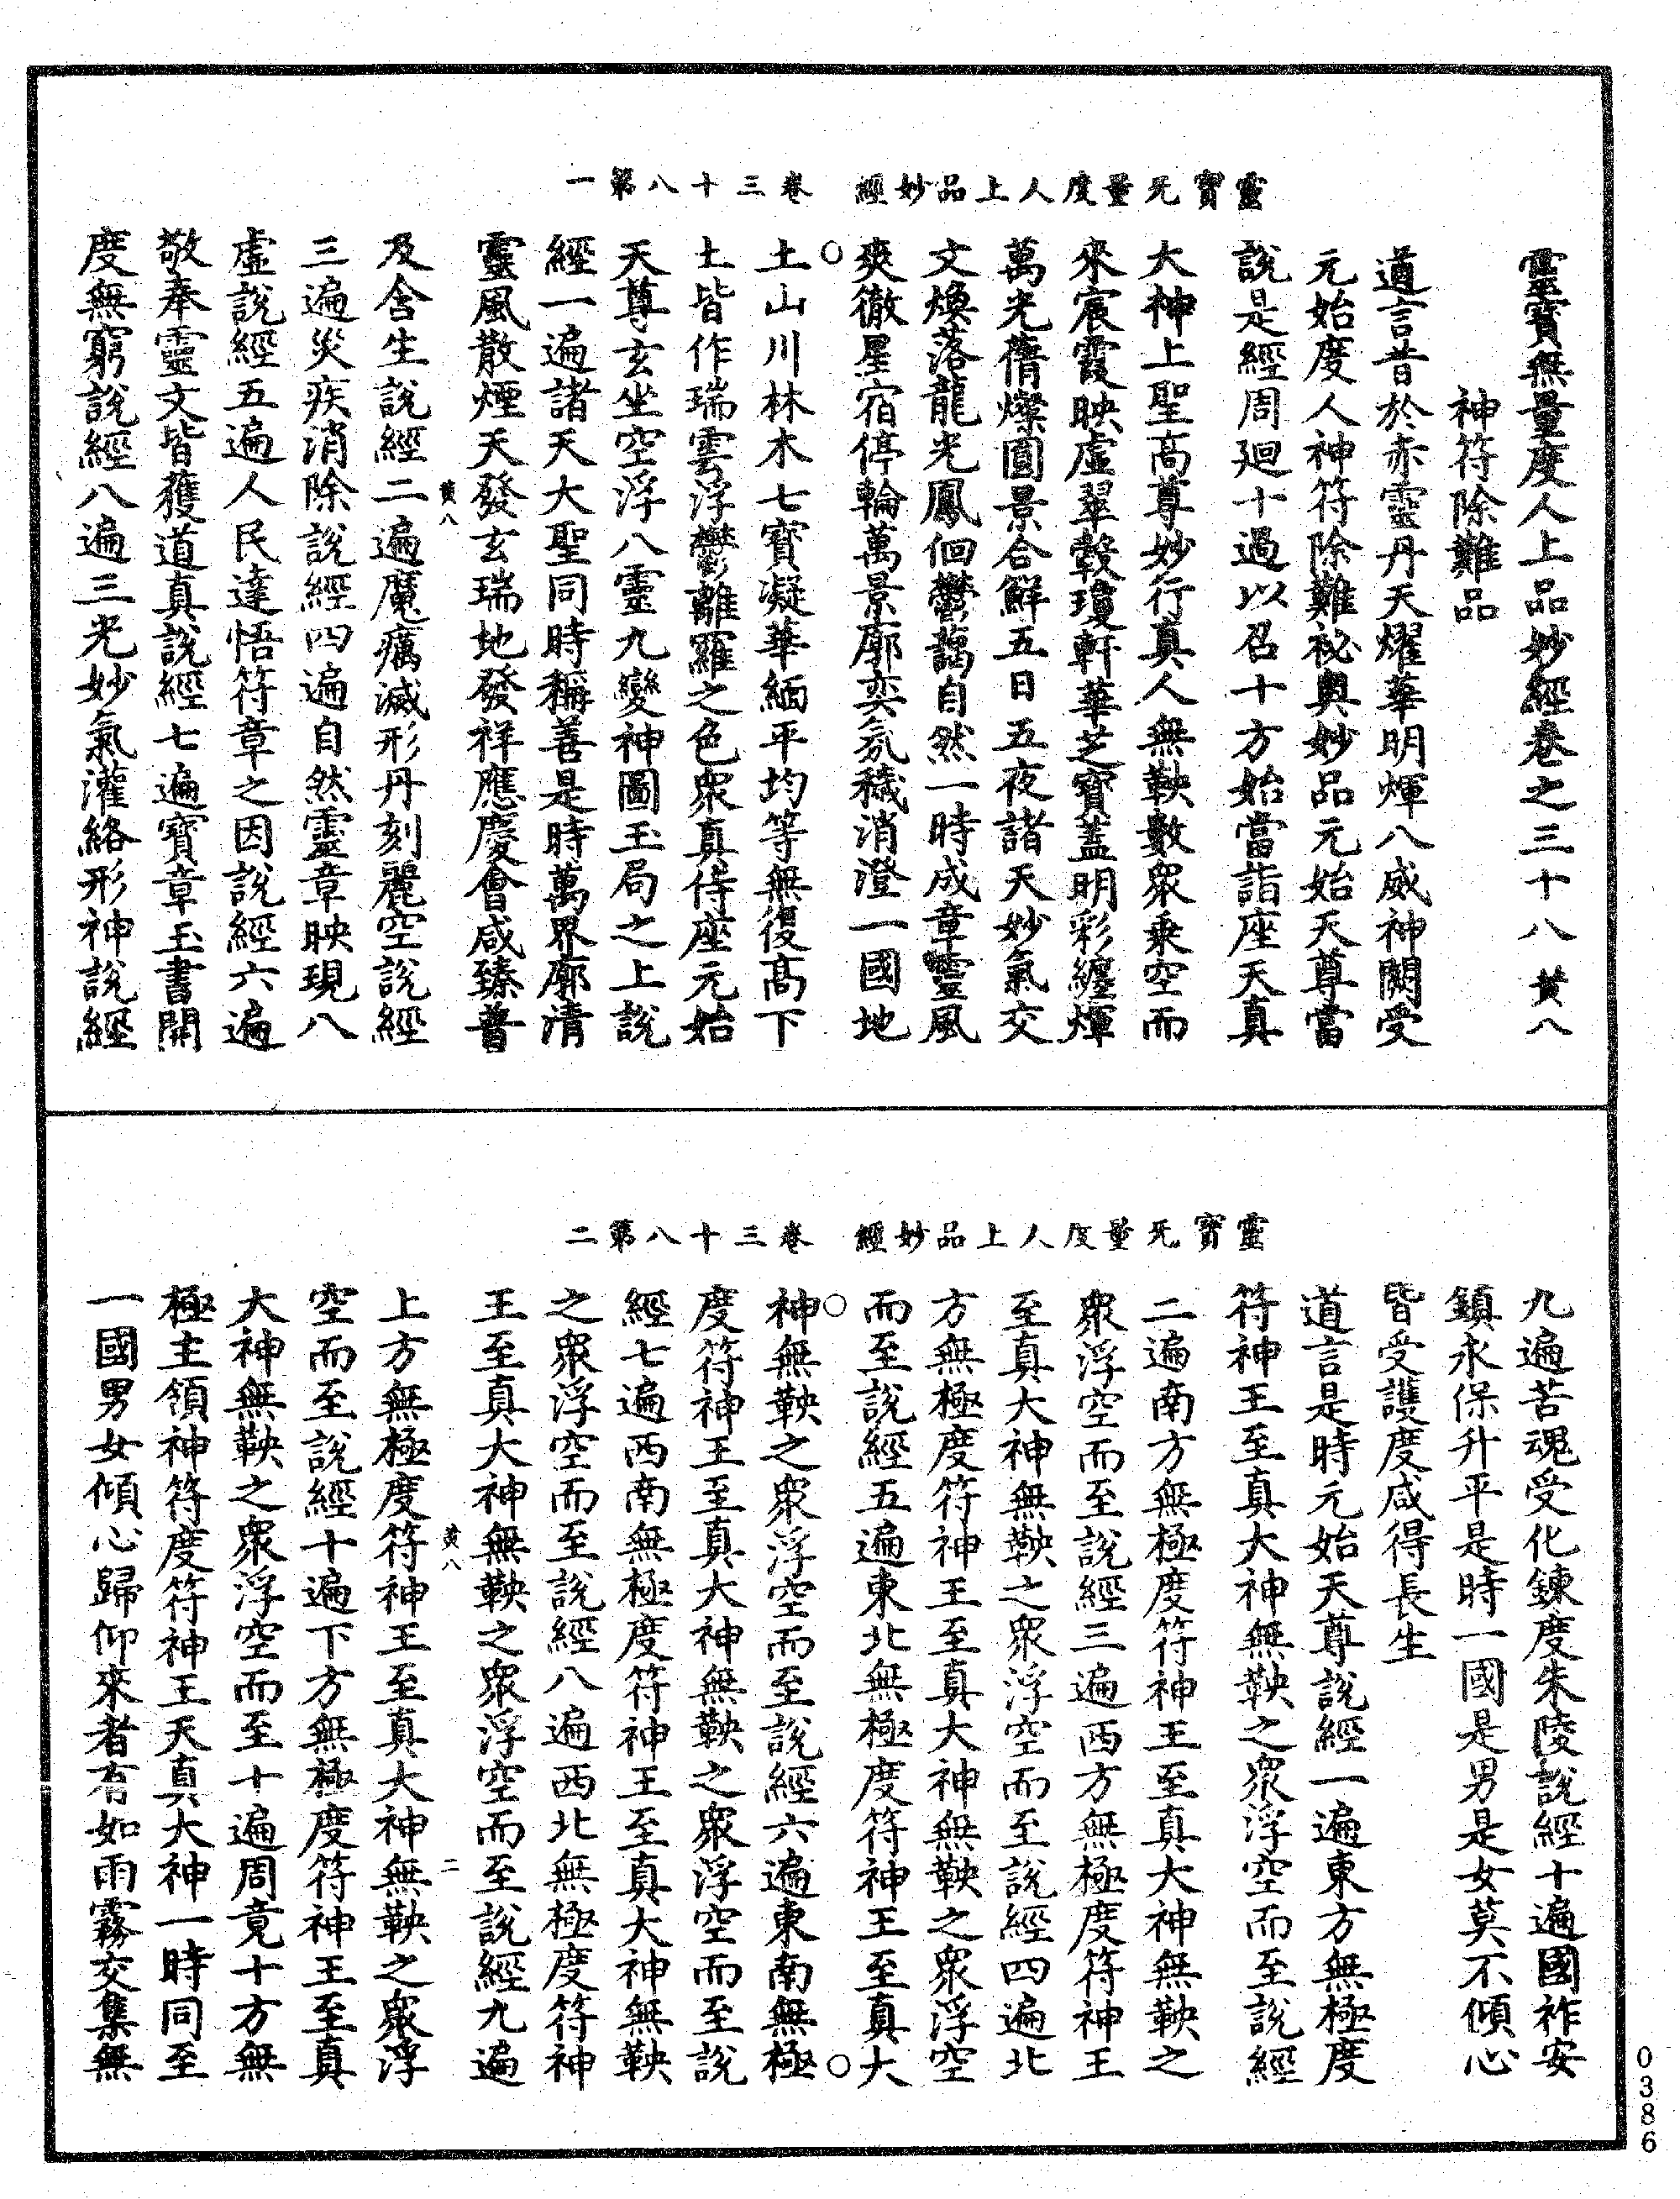 靈寳无量度人上品妙經　卷三十八第一
靈寳無量度人上品妙經卷之三十八　黃八
神符除難品
道言昔於赤靈丹天燿華明煇八威神闕受
元始度人神符除難祕奧妙品元始天尊當
說是經周迴十過以召十方始當詣座天真
大神上聖高尊妙行真人無鞅數衆乗空而
來宸霞映虛翠轂瓊軒華芝寳蓋明彩纏煇
萬光蒨燦圓景合鮮五日五夜諸天妙氣交
文煥落龍光鳳佪欝藹自然一時成章靈風
爽徹星宿停輪萬景廓奕氛穢消澄一國地
土山川林木七寳凝華緬平均等無復髙下
土皆作瑞雲浮欝離羅之色衆真侍座元始
天尊玄坐空浮八靈九變神圖玉局之上說
經一遍諸天大聖同時稱善是時萬界廓清
靈風散煙天發玄瑞地發祥應慶會咸臻普
黃八
及含生說經二遍魔癘滅形丹刻麗空說經
三遍災疾消除說經四遍自然靈章映現八
虛說經五遍人民達悟符章之因說經六遍
敬奉靈文皆獲道真說經七遍寳章玉書開
度無窮說經八遍三光妙氣灌絡形神說經
靈寳无量度人上品妙經　卷三十八第二
九遍苦魂受化鍊度朱陵說經十遍國祚安
鎮永保升平是時一國是男是女莫不傾心
皆受護度咸得長生
道言是時元始天尊說經一遍東方無極度
符神王至真大神無鞅之衆浮空而至說經
二遍南方無極度符神王至真大神無鞅之
衆浮空而至說經三遍西方無極度符神王
至真大神無鞅之衆浮空而至說經四遍北
方無極度符神王至真大神無鞅之衆浮空
而至說經五遍東北無極度符神王至真大
神無鞅之衆浮空而至說經六遍東南無極
度符神王至真大神無鞅之衆浮空而至說
經七遍西南無極度符神王至真大神無鞅
之衆浮空而至說經八遍西北無極度符神
王至真大神無鞅之衆浮空而至說經九遍
黃八　二
上方無極度符神王至真大神無鞅之衆浮
空而至說經十遍下方無極度符神王至真
大神無鞅之衆浮空而至十遍周竟十方無
極主領神符度符神王天真大神一時同至
一國男女傾心歸仰來者有如雨霧交集無
0386